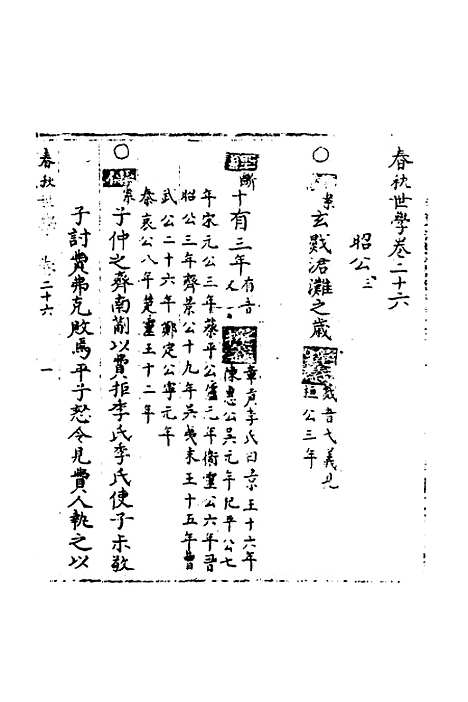 春秋世學卷二十六
昭公三
○案玄戩涒灘之歲
義見
桓公三年
經斷十有三年有音又
章虎李氏曰京王十六年
陳惠公吳元年杞平公七
年宋元公三年蔡平公廬元年衛靈公六年晉
昭公三年齊景公十九年吳夷末王十五年曹
武公二十六年鄭定公寧元年
秦哀公八年楚靈王十二年
○傳案子仲之齊南蒯以費拒季氏季氏使子叔敬
子討費弗克敗焉平子怒令見費人執之以
春秋
二十六
一